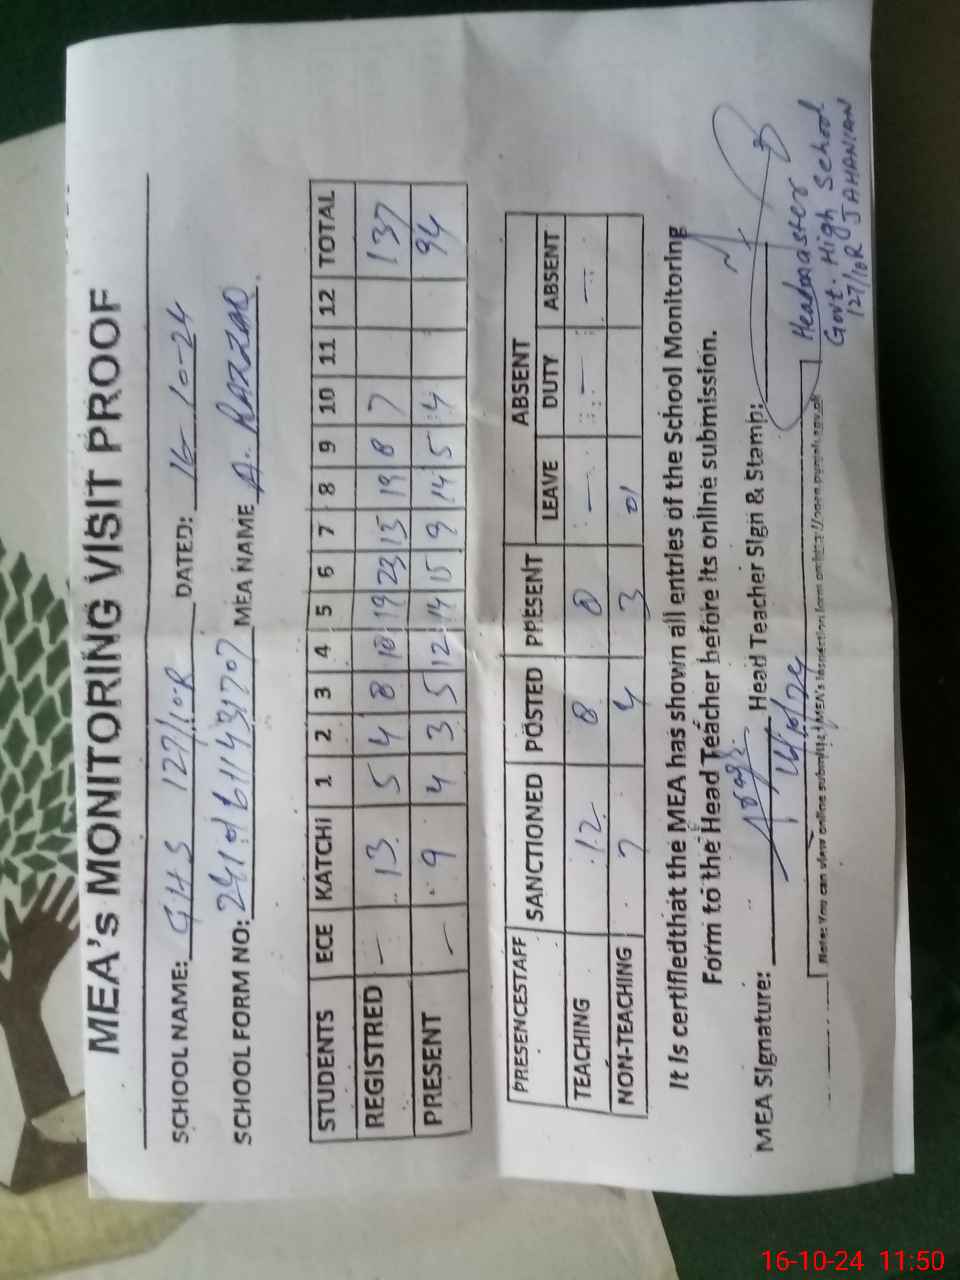 MEA's MONITORING VISIT PROOF
SCHOOL NAME: GHS 127/10.R DATED: 16-10-24
SCHOOL FORM NO: MEA NAME A. RAZZAQ
STUDENTS ECE KATCHI 1 2 3 4 5 6 7 8 9 10 11 12 TOTAL
REGISTRED — 13 5 4 8 10 19 23 15 19 8 7 137
PRESENT — 9 4 3 5 12 14 15 9 14 5 4 94
PRESENCESTAFF SANCTIONED POSTED PRESENT ABSENT
LEAVE DUTY ABSENT
TEACHING 12 8 8 — — —
NON-TEACHING 7 4 3 01
It is certifiedthat the MEA has shown all entries of the School Monitoring
Form to the Head Teacher before its online submission.
MEA Signature: Head Teacher Sign & Stamp:
Headmaster
Govt. High School
127/10R JAHANIAN
Note: You can view online submitted MEA's inspection form on
16-10-24 11:50